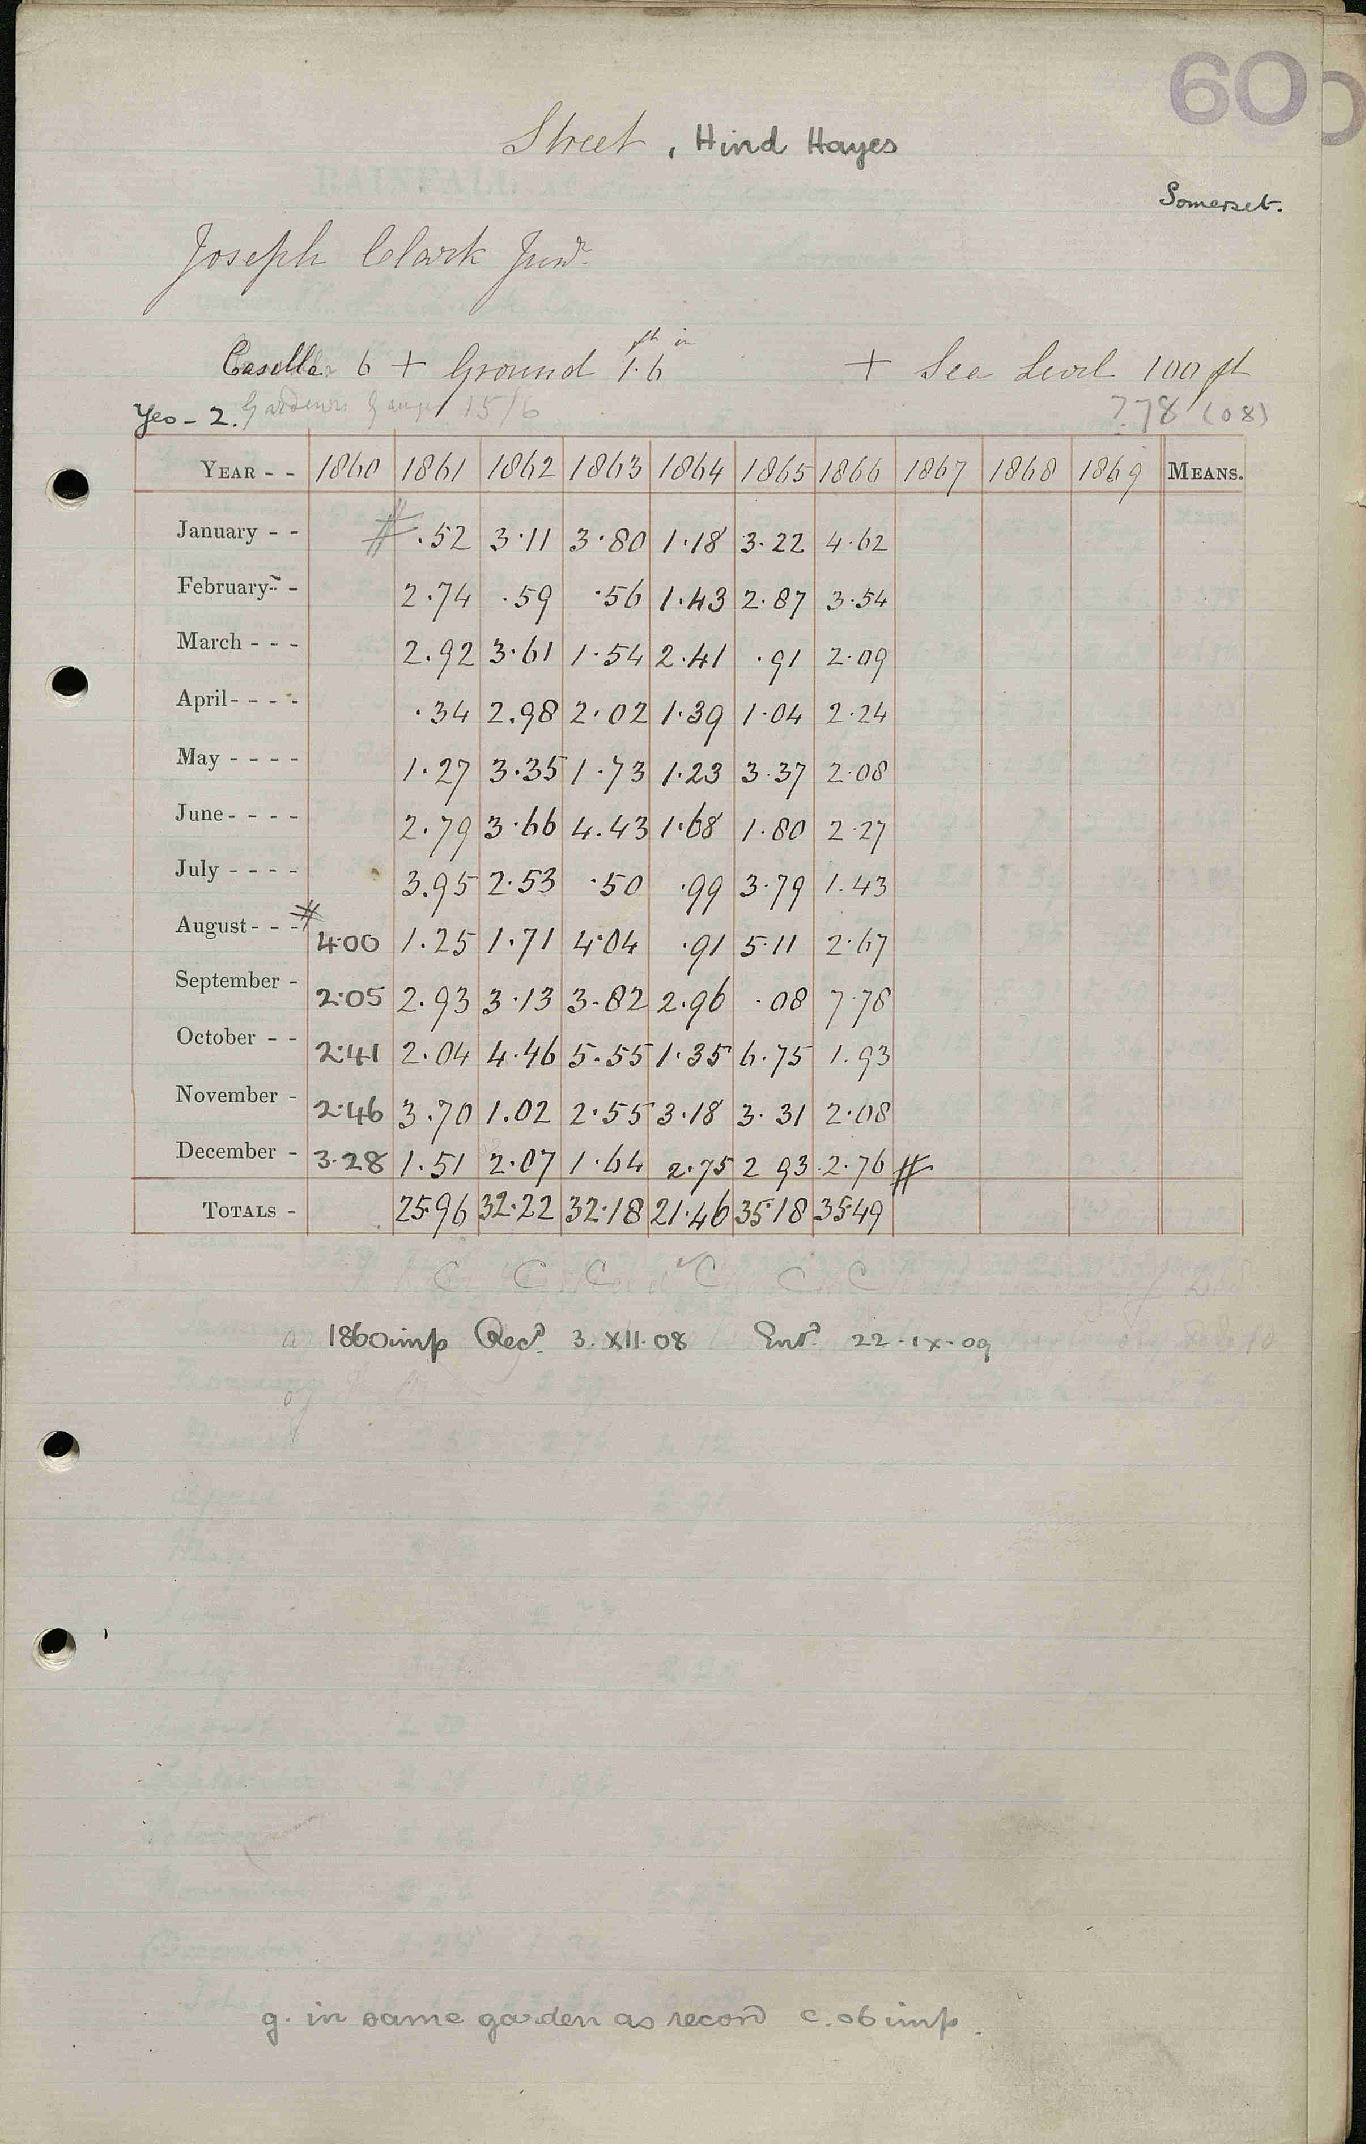 60
Street, Hind Hayes
Somerset.
Joseph Clark Junr.
ft in
Casella 6 + Ground 1.6 + Sea Level 100 ft
Yeo - 2. Gardeners Gauge 15/6 ?78 (08)
YEAR - - 1860 1861 1862 1863 1864 1865 1866 1867 1868 1869 MEANS.
January - - # .52 3.11 3.80 1.18 3.22 4.62
February - - 2.74 .59 .56 1.43 2.87 3.54
March - - - 2.92 3.61 1.54 2.41 .91 2.09
April - - - - .34 2.98 2.02 1.39 1.04 2.24
May - - - - 1.27 3.35 1.73 1.23 3.37 2.08
June - - - - 2.79 3.66 4.43 1.68 1.80 2.27
July - - - - 3.95 2.53 .50 .99 3.79 1.43
August - - - # 4.00 1.25 1.71 4.04 .91 5.11 2.67
September - 2.05 2.93 3.13 3.82 2.96 .08 7.78
October - - 2.41 2.04 4.46 5.55 1.35 6.75 1.93
November - 2.46 3.70 1.02 2.55 3.18 3.31 2.08
December - 3.28 1.51 2.07 1.64 2.75 2 93 2.76 #
TOTALS - 25.96 32.22 32.18 21.46 35.18 35.49
C C C C C C
1860 imp Recd. 3.XII.08 Entd. 22.IX.09
g. in same garden as record c. 06 imp.